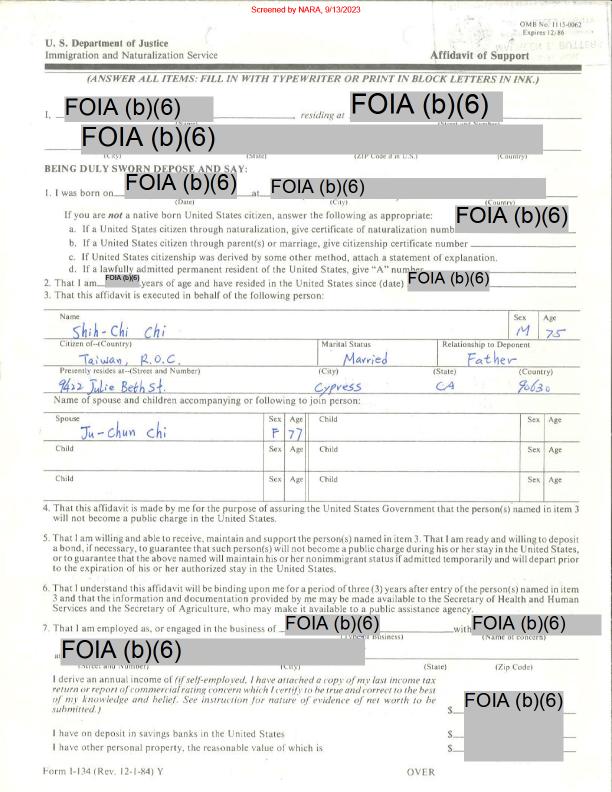 Screened by NARA, 9/13/2023
OMB No. 1115-0062
Expires 12/86
U. S. Department of Justice
Immigration and Naturalization Service Affidavit of Support
(ANSWER ALL ITEMS: FILL IN WITH TYPEWRITER OR PRINT IN BLOCK LETTERS IN INK.)
I, FOIA (b)(6) , residing at FOIA (b)(6)
FOIA (b)(6)
(City) (State) (ZIP Code if in U.S.) (Country)
BEING DULY SWORN DEPOSE AND SAY:
1. I was born on FOIA (b)(6) at FOIA (b)(6)
(Date) (City) (Country)
If you are not a native born United States citizen, answer the following as appropriate: FOIA (b)(6)
a. If a United States citizen through naturalization, give certificate of naturalization numb
b. If a United States citizen through parent(s) or marriage, give citizenship certificate number
c. If United States citizenship was derived by some other method, attach a statement of explanation.
d. If a lawfully admitted permanent resident of the United States, give "A" number
2. That I am FOIA (b)(6) years of age and have resided in the United States since (date) FOIA (b)(6)
3. That this affidavit is executed in behalf of the following person:
Name Sex Age
Shih-Chi Chi M 75
Citizen of--(Country) Marital Status Relationship to Deponent
Taiwan, R.O.C. Married Father
Presently resides at--(Street and Number) (City) (State) (Country)
9422 Julie Beth St. Cypress CA 90630
Name of spouse and children accompanying or following to join person:
Spouse Sex Age Child Sex Age
Ju-Chun Chi F 77
Child Sex Age Child Sex Age
Child Sex Age Child Sex Age
4. That this affidavit is made by me for the purpose of assuring the United States Government that the person(s) named in item 3
will not become a public charge in the United States.
5. That I am willing and able to receive, maintain and support the person(s) named in item 3. That I am ready and willing to deposit
a bond, if necessary, to guarantee that such person(s) will not become a public charge during his or her stay in the United States,
or to guarantee that the above named will maintain his or her nonimmigrant status if admitted temporarily and will depart
prior to the expiration of his or her authorized stay in the United States.
6. That I understand this affidavit will be binding upon me for a period of three (3) years after entry of the person(s) named in item
3 and that the information and documentation provided by me may be made available to the Secretary of Health and Human
Services and the Secretary of Agriculture, who may make it available to a public assistance agency.
7. That I am employed as, or engaged in the business of FOIA (b)(6) with FOIA (b)(6)
(Type of Business) (Name of concern)
at FOIA (b)(6)
(Street and Number) (City) (State) (Zip Code)
I derive an annual income of (if self-employed, I have attached a copy of my last income tax
return or report of commercial rating concern which I certify to be true and correct to the best
of my knowledge and belief. See instruction for nature of evidence of net worth to be
submitted.) $ FOIA (b)(6)
I have on deposit in savings banks in the United States $
I have other personal property, the reasonable value of which is $
Form I-134 (Rev. 12-1-84) Y OVER